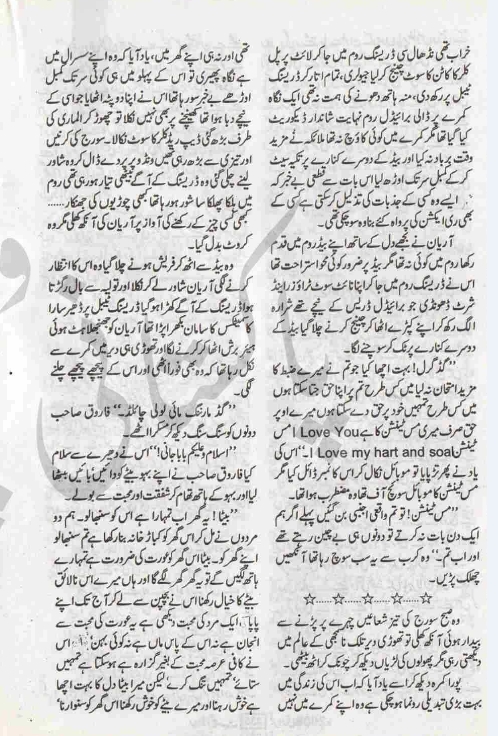 خراب تھی نڈھال سی ڈریسنگ روم میں جا کر لائٹ پرپل
کلر کا کاٹن کا سوٹ چینج کر لیا جیولری، تمام اتار کر ڈریسنگ
ٹیبل پر رکھ دی، منہ ہاتھ دھونے کی ہمت نہ تھی ایک نگاہ
کمرے پر ڈالی برائیڈل روم نہایت شاندار ڈیکوریٹ
کیا گیا تھا مگر کمرے میں کوئی کاؤچ نہ تھا ملائکہ نے مزید
وقت برباد نہ کیا اور بیڈ کے دوسرے کنارے پر تکیہ سیٹ
کر کے کمبل سر تک اوڑھ لیا اس بات سے قطعی بے خبر کہ
ایسے وہ کسی کے جذبات کی تذلیل کر سکتی ہے کسی کے
بھی ری ایکشن کی پرواہ کئے بنا وہ سو چکی تھی۔
آریان نے بجھے دل کے ساتھ اپنے بیڈ روم میں قدم
رکھا روم میں کوئی نہ تھا مگر بیڈ پر ضرور کوئی محو استراحت تھا
اس نے ڈریسنگ روم میں جا کر اپنا نائٹ سوٹ ٹراؤزر اینڈ
شرٹ ڈھونڈی جو برائیڈل ڈریس کے نیچے تھے شرارہ
الگ رکھ کر اپنے کپڑے اٹھا کر چینج کرنے چلا گیا بیڈ کے
دوسرے کنارے پر ٹک کر سوچنے لگا۔
”گڈ گرل! بہت اچھا کیا جو تم نے میرے ضبط کا
مزید امتحان نہ لیا میں کس طرح تم پر اپنا حق جتا سکتا ہوں
میں کس طرح تمہیں خود پر حق دے سکتا ہوں میرے اوپر
حق صرف میری مس ٹینشن کا ہے I Love You مس
ٹینشن I Love my hart and soal۔“ اس کی
یاد نے پھر تڑپایا تو موبائل نکال کر اس کا نمبر ڈائل کیا مگر
مس ٹینشن کا موبائل سوئچ آف تھا وہ مضطرب ہوا تھا۔
”مس ٹینشن! تو تم واقعی اجنبی بن گئیں پہلے اگر ہم
ایک دن بات نہ کرتے تو دونوں ہی بے چین رہتے تھے
اور اب تم۔“ وہ کرب سے یہ سب سوچ رہا تھا آنکھیں
چھلک پڑیں۔
☆.....☆.....☆.....☆.....☆
وہ صبح سورج کی تیز شعاعیں چہرے پر پڑنے سے
بیدار ہوئی آنکھ کھلی تو تھوڑی دیر تک نا سمجھی کے عالم میں
دیکھتی رہی مگر پھولوں کی لڑیاں دیکھ کر چونک کر اٹھ بیٹھی۔
پورا کمرہ دیکھ کر اسے یاد آیا کہ اب اس کی زندگی میں
بہت بڑی تبدیلی رونما ہو چکی ہے وہ اپنے کمرے میں نہیں
تھی اور نہ ہی اپنے گھر میں، یاد آیا کہ وہ اپنے سسرال میں
ہے نگاہ پھیری تو اس کے پہلو میں ہی کوئی سر تک کمبل
اوڑھے بے خبر سو رہا تھا اس نے اپنا دوپٹہ اٹھایا جو اسی کے
نیچے دبا ہوا تھا کھینچنے پر بھی نہیں نکلا تو چھوڑ کر الماری کی
طرف بڑھ گئی ڈیپ ریڈ کلر کا سوٹ نکالا۔ سورج کی کرنیں
اور تیزی سے بڑھ رہی تھیں ونڈو پر پردے ڈال کر وہ شاور
لینے چلی گئی وہ ڈریسنگ کے آگے بیٹھی تیار ہو رہی تھی روم
میں ہلکا پھلکا سا شور ہو رہا تھا کبھی چوڑیوں کی جھنکار......
کبھی کسی چیز کے رکھنے کی آواز پر آریان کی آنکھ کھلی مگر وہ
کروٹ بدل گیا۔
وہ بیڈ سے اٹھ کر فریش ہونے چلا گیا وہ اس کا انتظار
کرنے لگی آریان شاور لے کر نکلا اور تولیہ سے بال رگڑتا
ہوا ڈریسنگ کے آگے کھڑا ہو گیا ڈریسنگ ٹیبل پر ڈھیر سارا
کاسمیٹکس کا سامان بکھرا پڑا تھا آریان کو جھنجھلاہٹ ہوئی
ہیئر برش اٹھا کر کرنے لگا اور تھوڑی ہی دیر میں کمرے سے
نکل رہا تھا کہ وہ بھی فوراً اٹھی اور اس کے پیچھے پیچھے چلنے
لگی۔
”گڈ مارننگ مائی لولی چائلڈ۔“ فاروق صاحب
دونوں کو سنگ سنگ دیکھ کر مسکرا اٹھے۔
”السلام وعلیکم بابا جانی!“ اس نے دھیرے سے سلام
کیا فاروق صاحب نے اپنے بہو بیٹے کو دائیں بائیں بیٹھا
لیا اور بہو کے ہاتھ تھام کر شفقت اور محبت سے بولے۔
”بیٹا! یہ گھر اب تمہارا ہے اس کو سنبھالو۔ ہم دو
مردوں نے مل کر اس گھر کو کباڑ خانہ بنا رکھا ہے تم سنبھالو
اپنے گھر کو۔ بیٹا اس گھر کو عورت کی ضرورت ہے تمہارے
ہاتھ لگیں گے تو یہ گھر گھر لگے گا اور ہاں میرے اس نالائق
بیٹے کا خیال رکھنا اس نے بچپن سے لے کر آج تک اپنے
پاپا، ایک مرد کی محبت دیکھی ہے یہ عورت کی محبت سے
انجان ہے نہ اس کے پاس ماں ہے نہ کوئی بہن اس
نے کافی عرصہ محبت کے بغیر گزارہ ہے ہو سکتا ہے تمہیں
ستائے تمہیں تنگ کرے لیکن میرا بیٹا دل کا بہت اچھا
ہے خوش رہنا اور میرے بیٹے کو خوش رکھنا اس گھر کو سنوارنا“